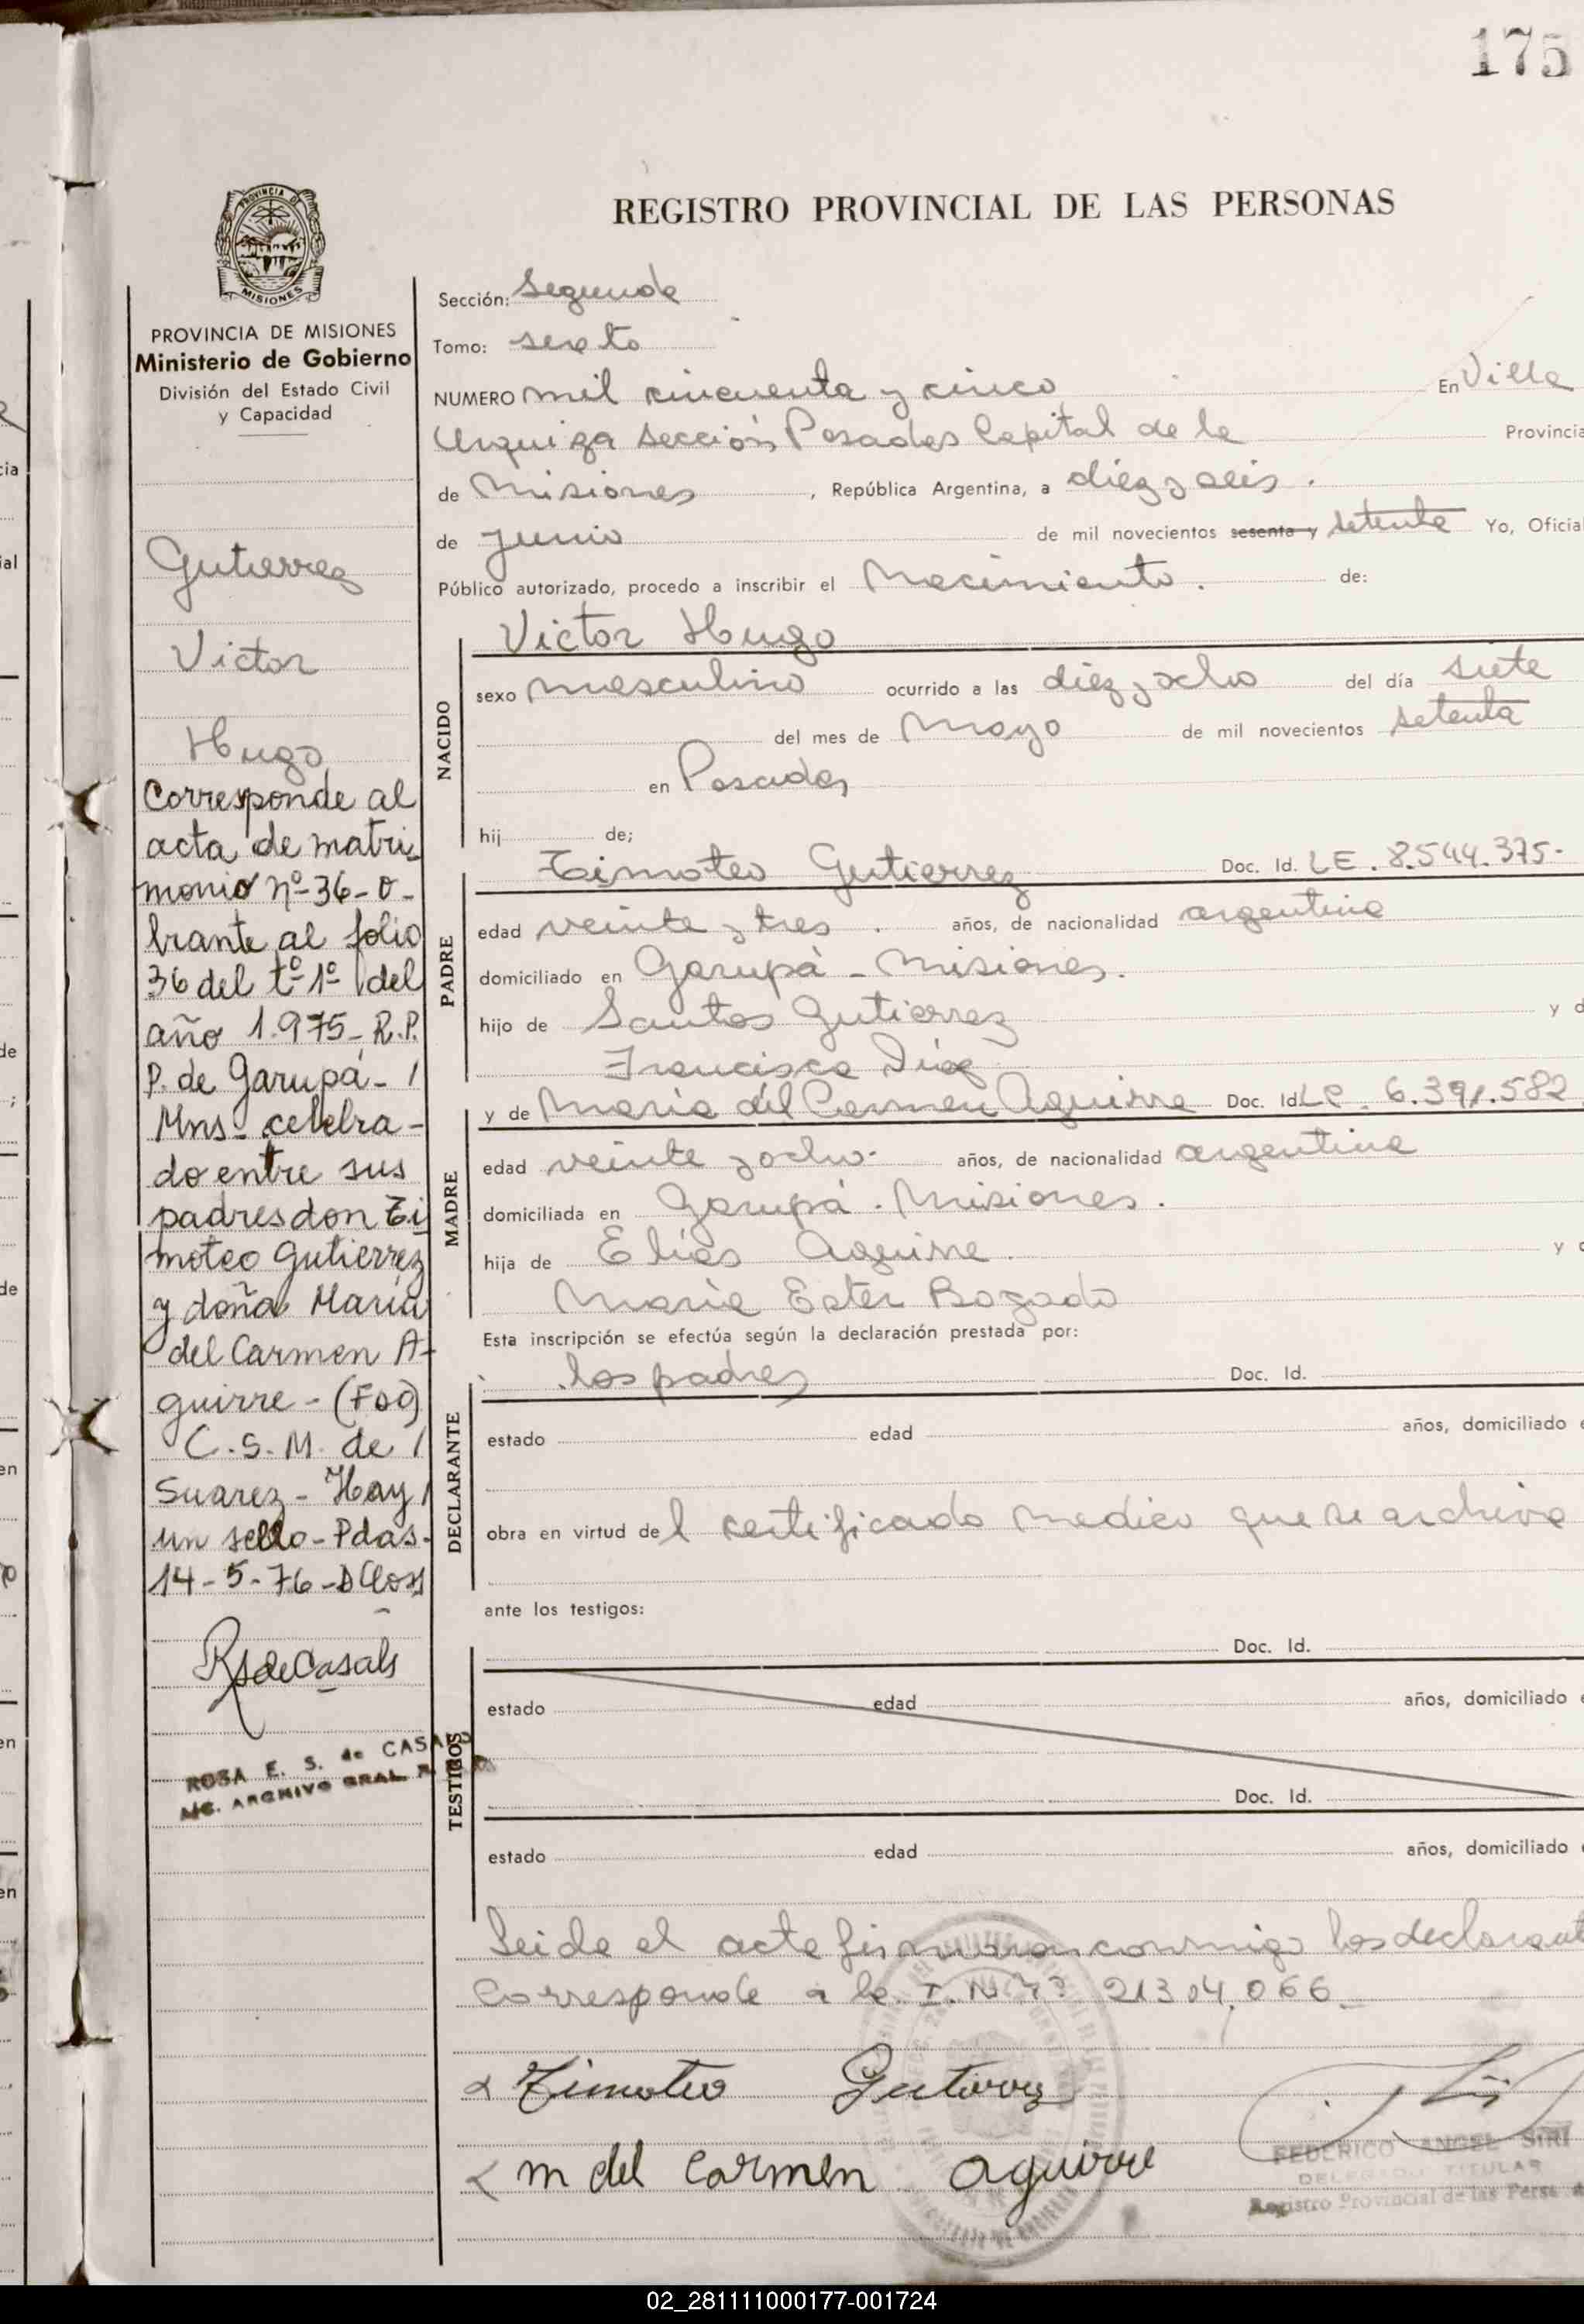 175
REGISTRO PROVINCIAL DE LAS PERSONAS
PROVINCIA DE
MISIONES
PROVINCIA DE MISIONES
Ministerio de Gobierno
División del Estado Civil
y Capacidad
Gutierrez
Victor
Hugo
Corresponde al
acta de matri
monio nº 36-o-
brante al folio
36 del tº 1º del
año 1.975- R.P.
P. de Garupá- /
Mns- celebra-
do entre sus
padres don Ti
moteo Gutierrez
y doña María
del Carmen A-
guirre - (Fdo)
C.S.M. de /
Suarez - Hay /
un sello - Pdas.
14-5-76-
RSdeCasals
ROSA E. S. de CASALS
ARCHIVO GRAL
Sección: Segunda
Tomo: sexto
NUMERO mil cincuenta y cinco En Villa
Urquiza sección Posadas Capital de la Provincia
de Misiones, República Argentina, a diez y seis.
de Junio de mil novecientos sesenta y setenta Yo, Oficial
Público autorizado, procedo a inscribir el Nacimiento. de:
NACIDO
Victor Hugo
sexo masculino ocurrido a las diez y ocho del día siete
del mes de Mayo de mil novecientos setenta
en Posadas
hij de;
PADRE
Timoteo Gutierrez Doc. Id. LE. 8.544.375-
edad veinte y tres. años, de nacionalidad argentina
domiciliado en Garupá - Misiones.
hijo de Santos Gutierrez y d
Francisca Diaz
MADRE
y de María del Carmen Aguirre Doc. Id. LC. 6.391.582
edad veinte y ocho- años, de nacionalidad argentina
domiciliada en Garupá. Misiones.
hija de Elías Aguirre. y d
María Ester Bogado
Esta inscripción se efectúa según la declaración prestada por:
DECLARANTE
los padres Doc. Id.
estado edad años, domiciliado e
obra en virtud del certificado medico que se archiva
ante los testigos:
TESTIGOS
Doc. Id.
estado edad años, domiciliado e
Doc. Id.
estado edad años, domiciliado e
Leida el acta firmaron conmigo los declarant
Corresponde a la I. Nº 21304.066.
Timoteo Gutierrez
m del carmen aguirre
FEDERICO ANGEL SIRI
DELEGADO TITULAR
Registro Provincial de las Pers
02_281111000177-001724